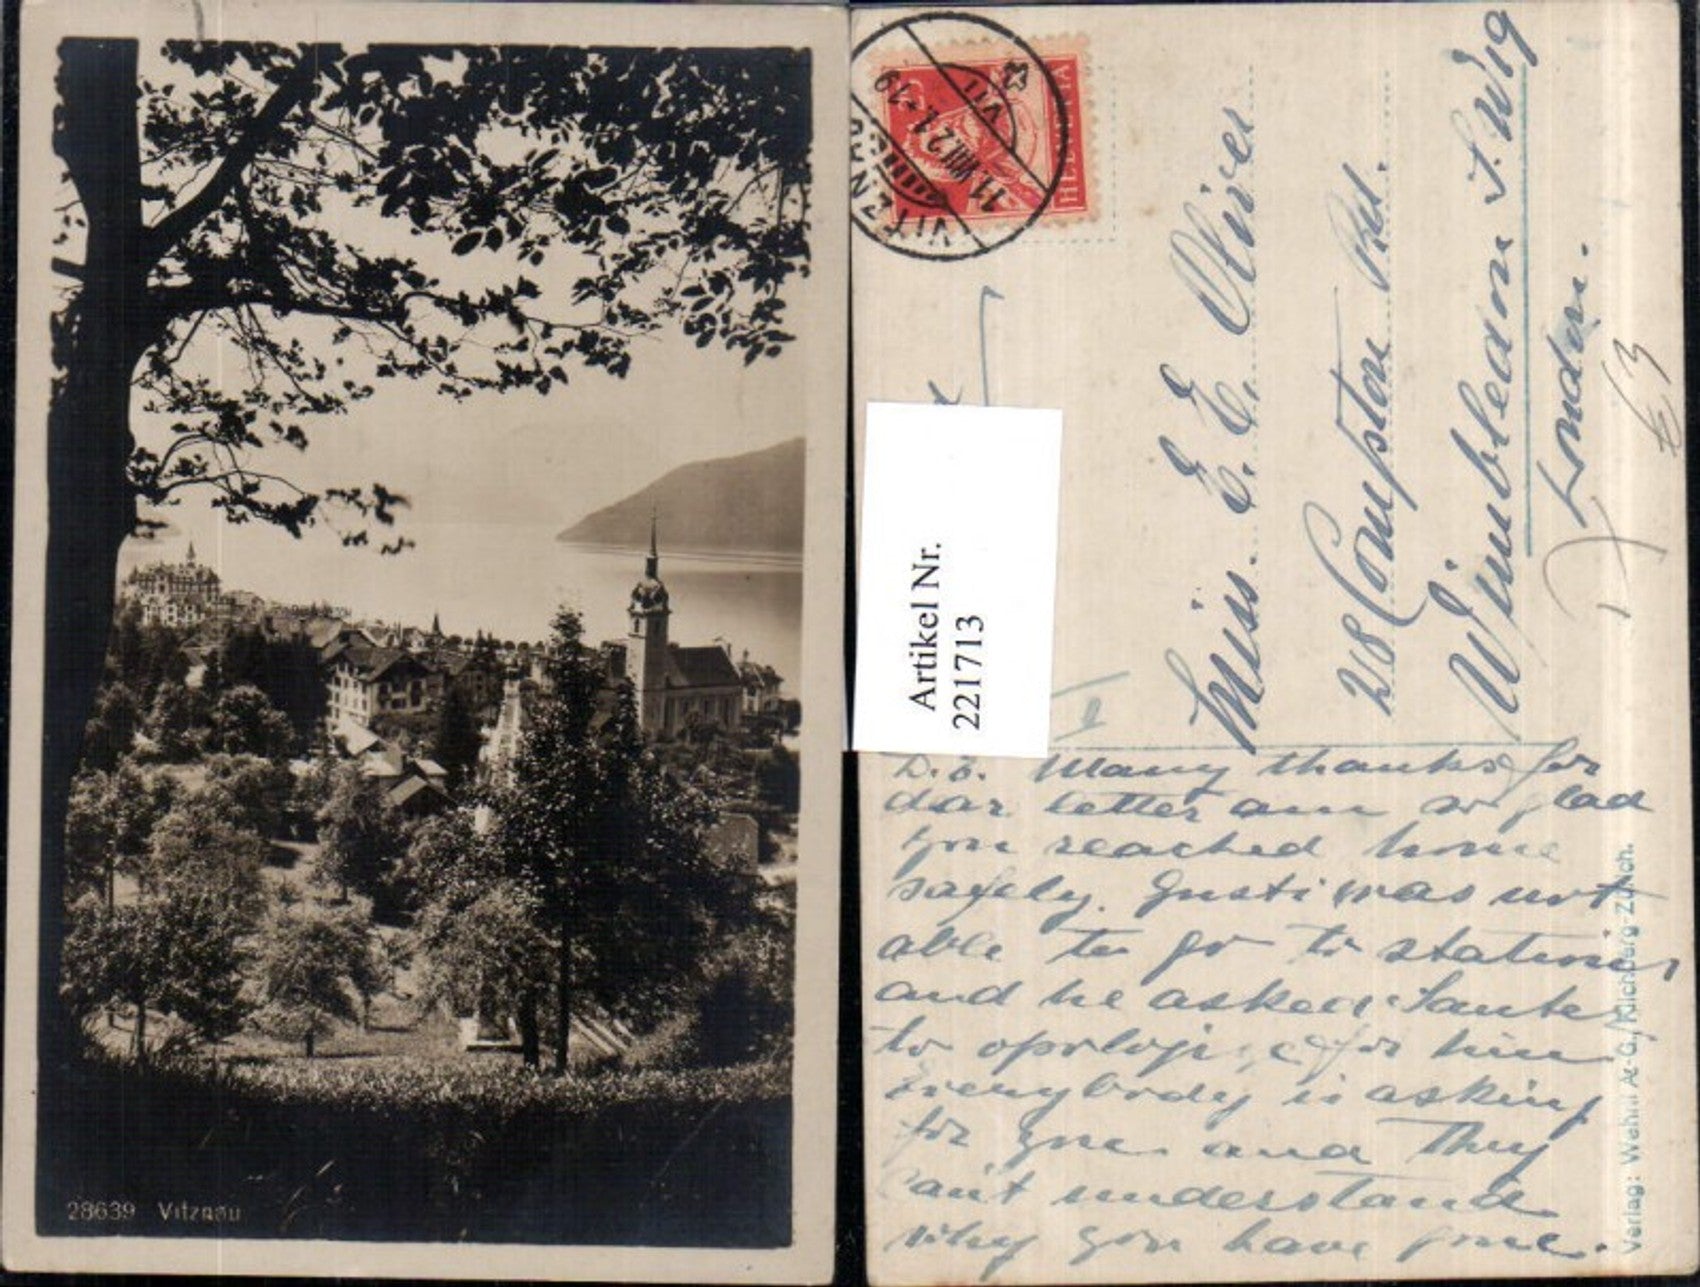 28639 Vitznau
VITZNAU
11.VIII.21.-19
VII
HELVETIA
Artikel Nr.
221713
Miss. E. E. Oliver
218 Compton Rd.
Wimbledon S.W19
London.
£3
D.E. Many thanks for
dear letter am so glad
you reached home
safely. Gusti was not
able to go to station
and he asked Santer
to opologise for him
Everybody is asking
for you and they
can't understand
why you have gone.
Verlag: Wehrli A.-G., Kilchberg-Zürich.